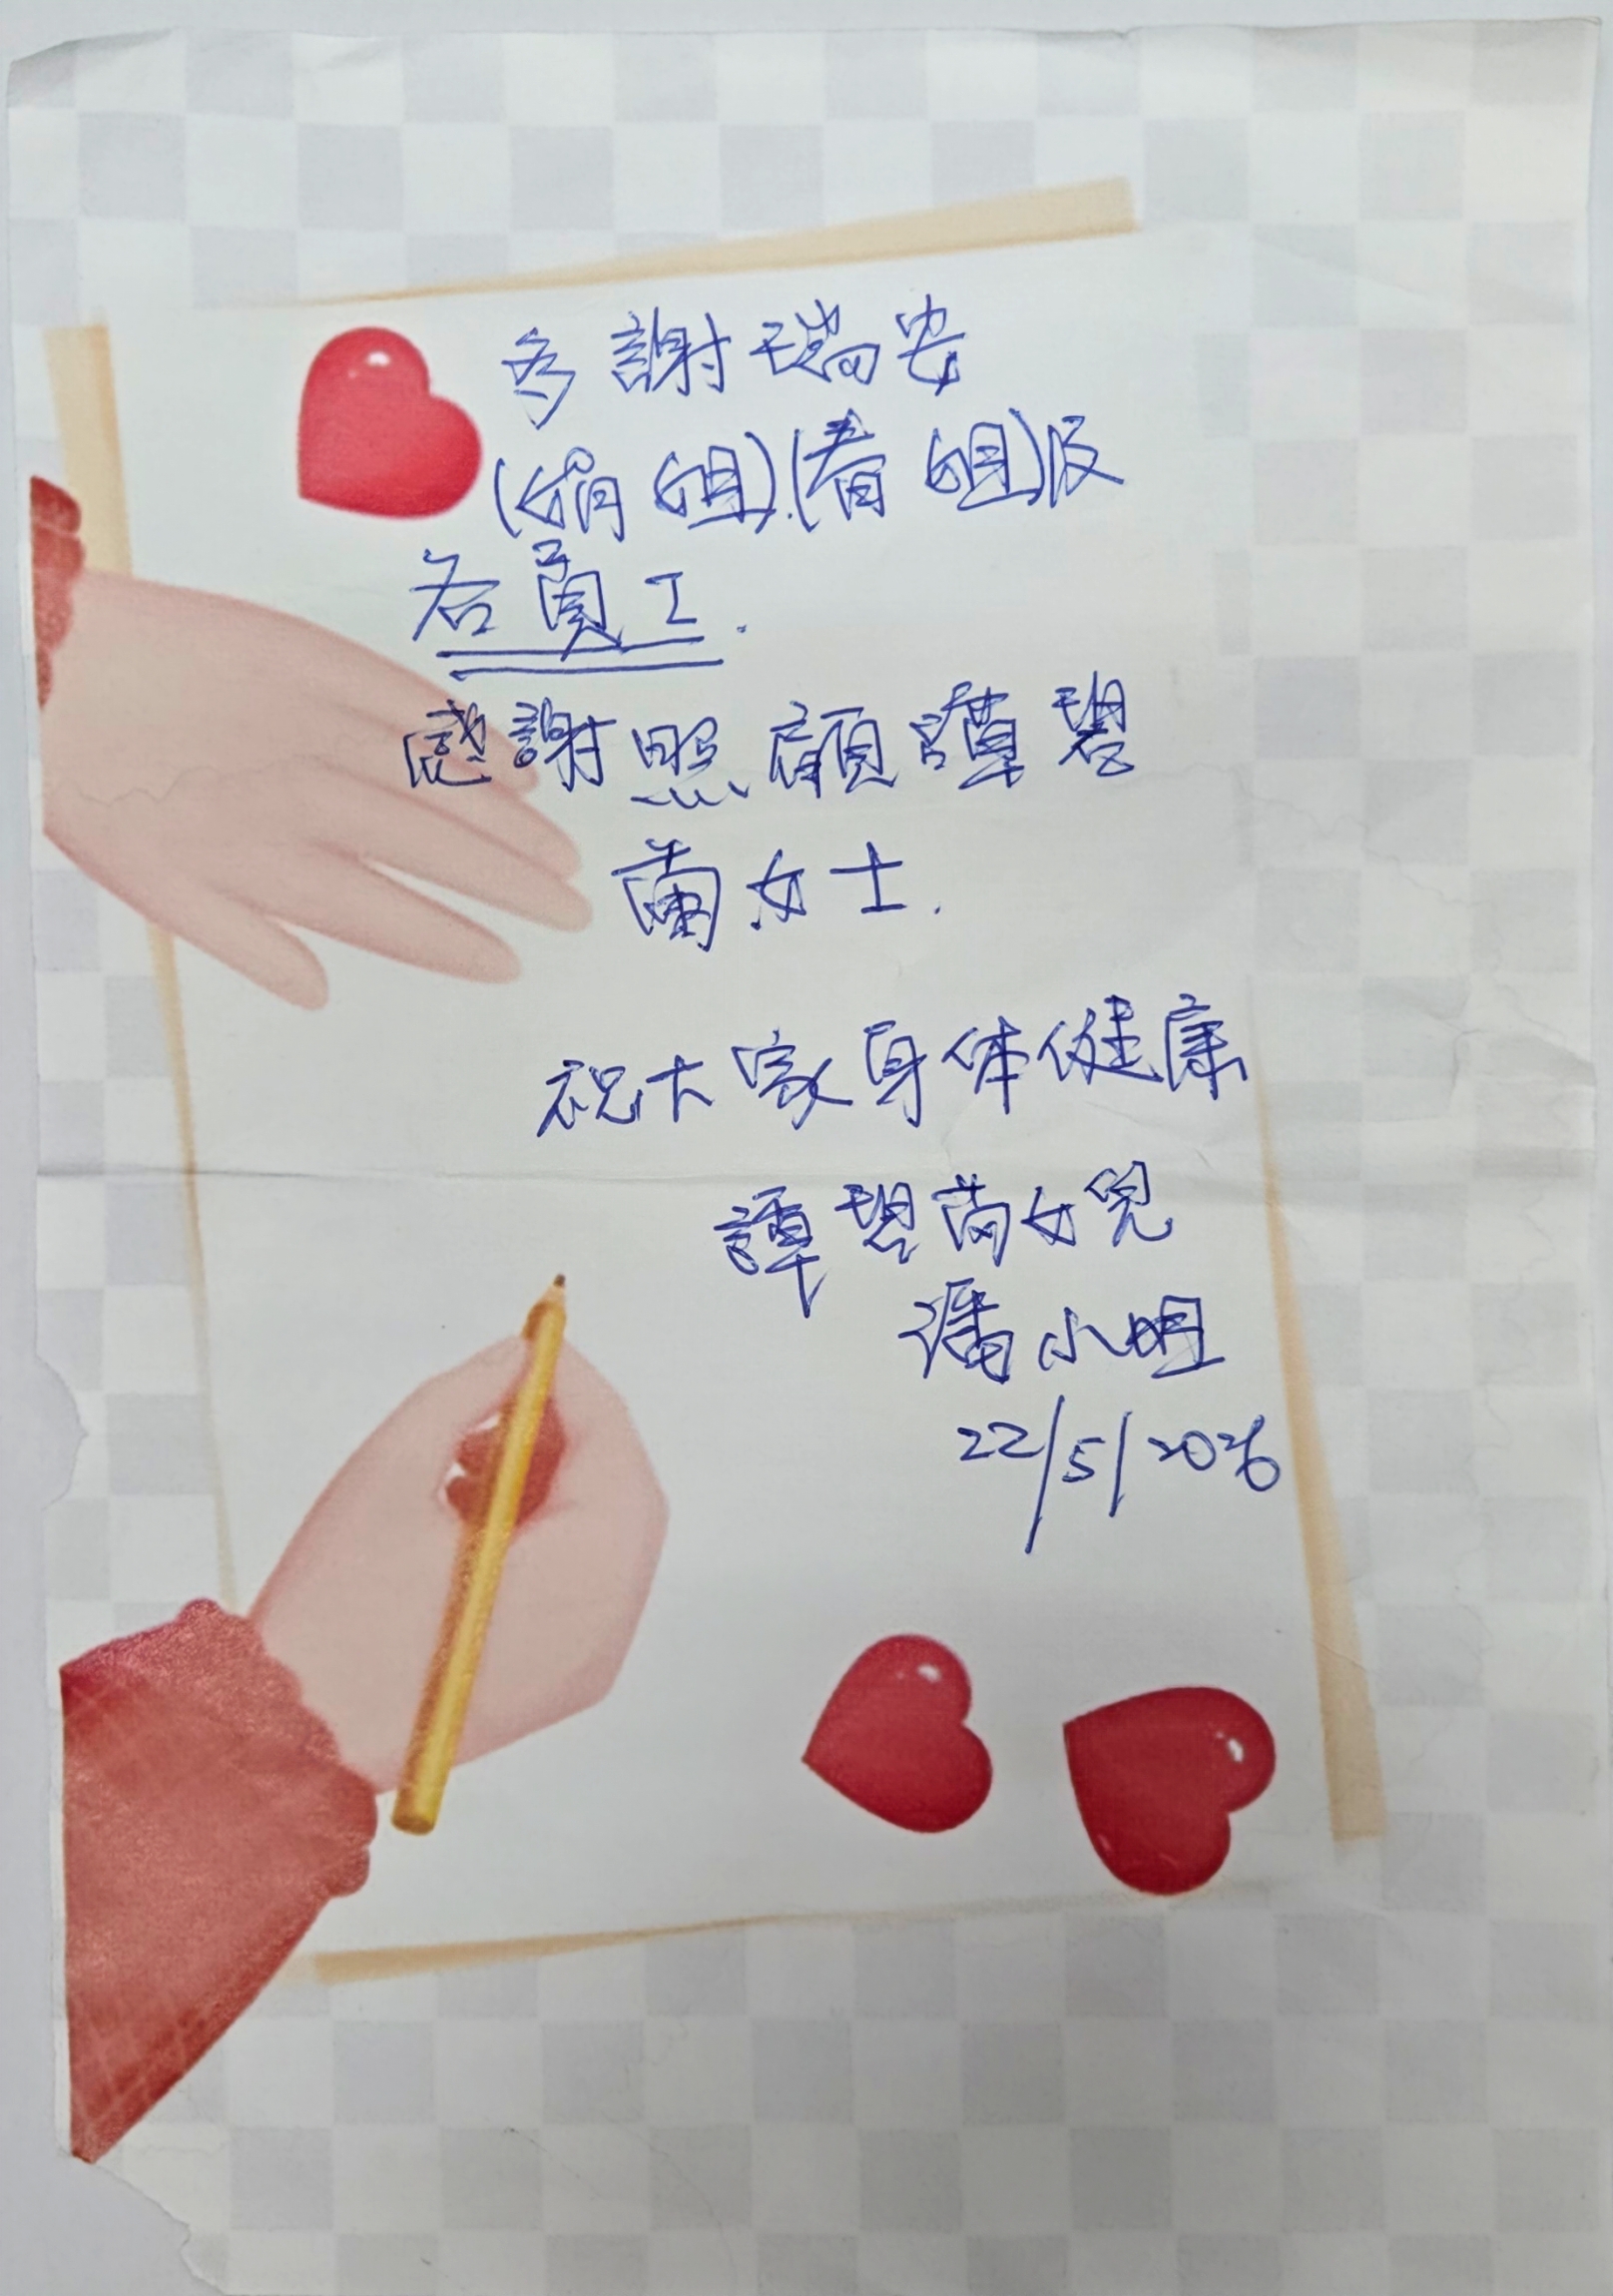 多謝瑞安
(娟姐).(春姐)及
各員工.
感謝照顧譚碧
蘭女士.
祝大家身体健康
譚碧蘭女兒
潘小姐
22/5/2026